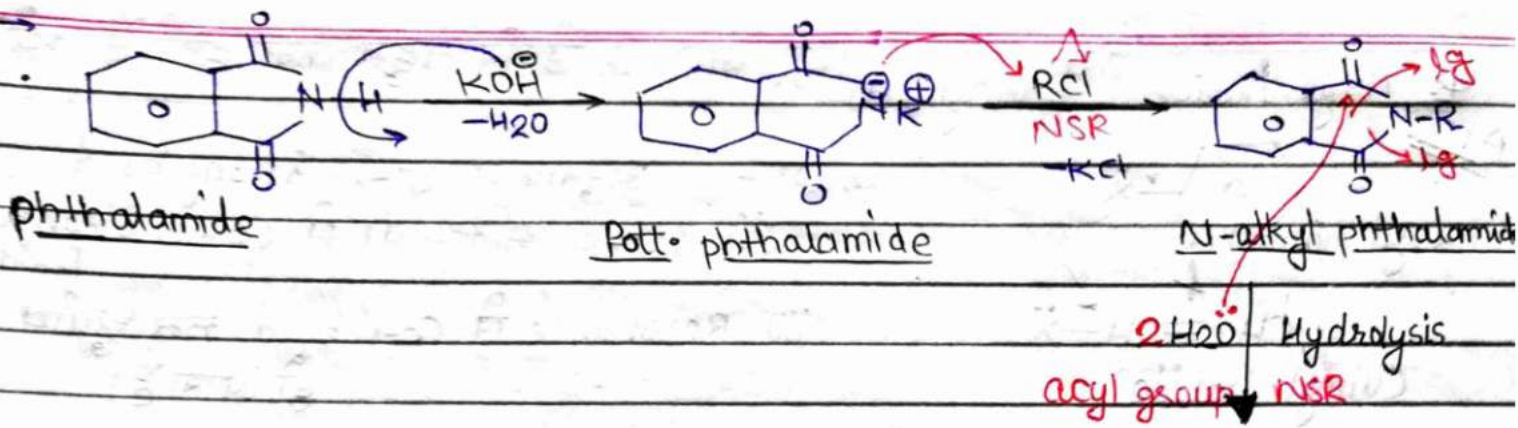 O O O
N-H KOH⊖ ⊖ N K⊕ RCl N-R lg
-H2O NSR lg
-KCl
O O O
phthalamide Pott. phthalamide N-alkyl phthalamid
2H2Ö Hydrolysis
acyl group NSR